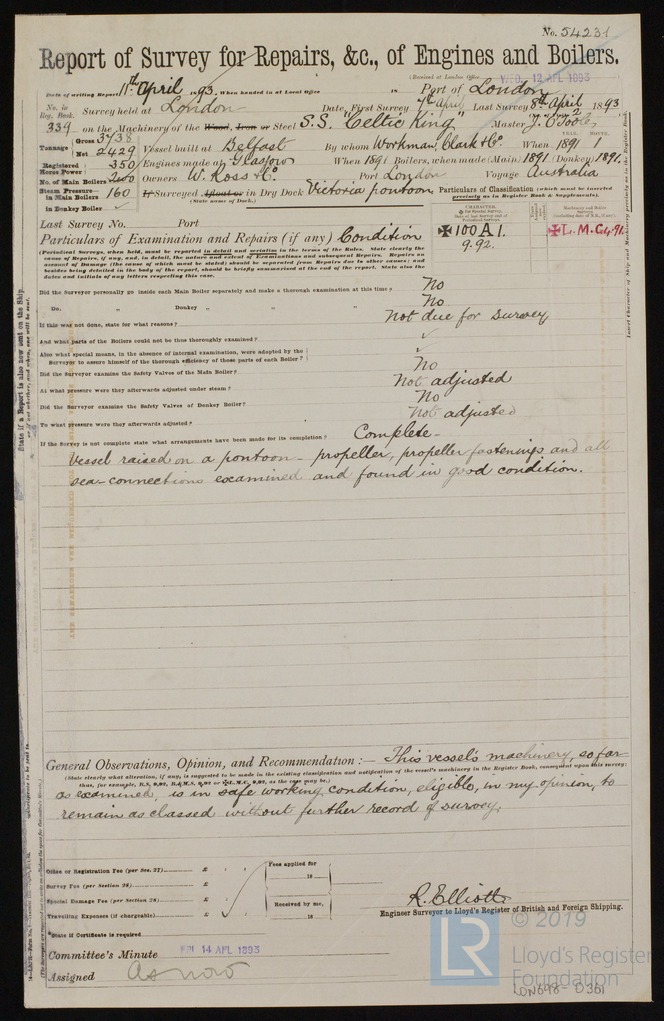 No. 54231
Report of Survey for Repairs, &c., of Engines and Boilers.
(Received at London Office WED. 12 APL 1893
Date of writing Report 11th April 1893. When handed in at Local Office 18 Port of London
No. in Reg. Book. Survey held at London Date, First Survey 7th April Last Survey 8th April 1893
339 on the Machinery of the Wood, Iron or Steel S.S. "Celtic King" Master J. O'Toole
Tonnage Gross 3738 Net 2429 Vessel built at Belfast By whom Workman, Clark & Co. When 1891 YEAR. MONTH. 1
Registered Horse Power 350 Engines made at Glasgow When 1891 Boilers, when made (Main) 1891 (Donkey) 1891.
No. of Main Boilers 200 Owners W. Ross & Co. Port London Voyage Australia
Steam Pressure in Main Boilers 160 If Surveyed Afloat or in Dry Dock Victoria pontoon
(State name of Dock.)
in Donkey Boiler ✓
Particulars of Classification (which must be inserted precisely as in Register Book & Supplements).
CHARACTER.
✠100A1.
9.92.
✠L.M.C.4.91.
Last Survey No. Port
Particulars of Examination and Repairs (if any) Condition
(Periodical Surveys, when held, must be reported in detail and seriatim in the terms of the Rules. State clearly the
cause of Repairs, if any, and, in detail, the nature and extent of Examinations and subsequent Repairs. Repairs on
account of Damage (the cause of which must be stated) should be separated from Repairs due to other causes; and
besides being detailed in the body of the report, should be briefly summarised at the end of the report. State also the
dates and initials of any letters respecting this case.
Did the Surveyor personally go inside each Main Boiler separately and make a thorough examination at this time? No
Do. „ Donkey „ „ „ No
If this was not done, state for what reasons? Not due for Survey
And what parts of the Boilers could not be thus thoroughly examined? ✓
Also what special means, in the absence of internal examination, were adopted by the
Surveyor to assure himself of the thorough efficiency of those parts of each Boiler? ✓
Did the Surveyor examine the Safety Valves of the Main Boiler? No
At what pressure were they afterwards adjusted under steam? Not adjusted
Did the Surveyor examine the Safety Valves of Donkey Boiler? No
To what pressure were they afterwards adjusted? Not adjusted
If the Survey is not complete state what arrangements have been made for its completion? Complete -
Vessel raised on a pontoon - propeller, propeller fastenings and all
sea-connections examined and found in good condition.
General Observations, Opinion, and Recommendation:— This vessel's machinery, so far
(State clearly what alteration, if any, is suggested to be made in the existing classification and notification of the vessel's machinery in the Register Book, consequent upon this survey;
as examined, is in safe working condition, eligible, in my opinion, to
remain as classed without further record of survey.
Office or Registration Fee (per Sec. 27) £
Survey Fee (per Section 28) £
Special Damage Fee (per Section 28) £
Travelling Expenses (if chargeable) £
Fees applied for
18
Received by me,
18
*State if Certificate is required
R. Elliott
Engineer Surveyor to Lloyd's Register of British and Foreign Shipping.
Committee's Minute FRI 14 APL 1893
Assigned As now
State if a Report is also now sent on the Ship.
LR
© 2019
Lloyd's Register
Foundation
LON698-0361